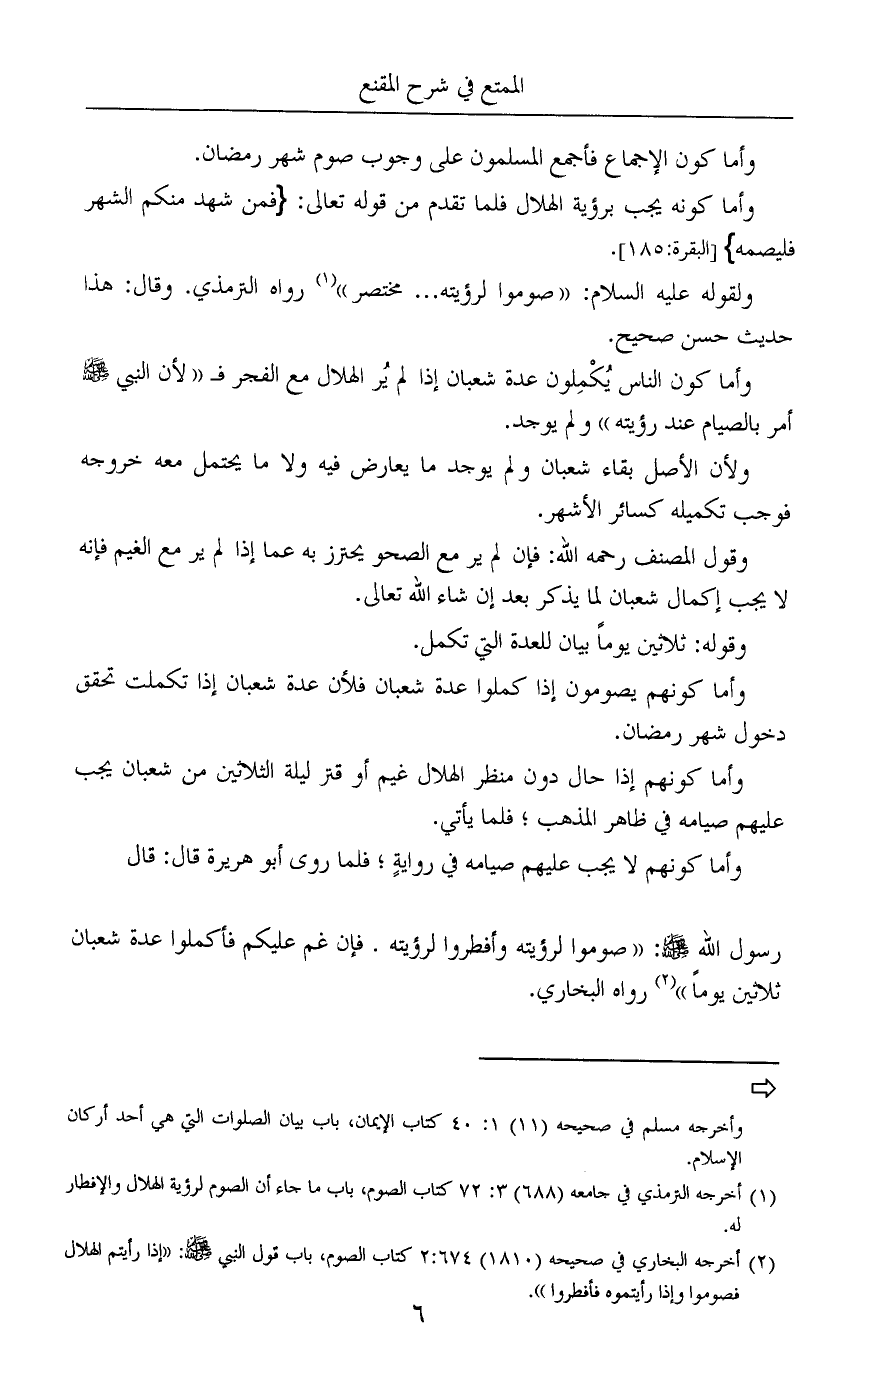 الممتع في شرح المقنع
وأما كون الإجماع فأجمع المسلمون على وجوب صوم شهر رمضان.
وأما كونه يجب برؤية الهلال فلما تقدم من قوله تعالى: {فمن شهد منكم الشهر
فليصمه} [البقرة:١٨٥].
ولقوله عليه السلام: «صوموا لرؤيته... مختصر»(١) رواه الترمذي. وقال: هذا
حديث حسن صحيح.
وأما كون الناس يُكْمِلون عدة شعبان إذا لم يُر الهلال مع الفجر فـ «لأن النبي ﷺ
أمر بالصيام عند رؤيته» ولم يوجد.
ولأن الأصل بقاء شعبان ولم يوجد ما يعارض فيه ولا ما يحتمل معه خروجه
فوجب تكميله كسائر الأشهر.
وقول المصنف رحمه الله: فإن لم ير مع الصحو يحترز به عما إذا لم ير مع الغيم فإنه
لا يجب إكمال شعبان لما يذكر بعد إن شاء الله تعالى.
وقوله: ثلاثين يوماً بيان للعدة التي تكمل.
وأما كونهم يصومون إذا كملوا عدة شعبان فلأن عدة شعبان إذا تكملت تحقق
دخول شهر رمضان.
وأما كونهم إذا حال دون منظر الهلال غيم أو قتر ليلة الثلاثين من شعبان يجب
عليهم صيامه في ظاهر المذهب ؛ فلما يأتي.
وأما كونهم لا يجب عليهم صيامه في روايةٍ ؛ فلما روى أبو هريرة قال: قال
رسول الله ﷺ: «صوموا لرؤيته وأفطروا لرؤيته . فإن غم عليكم فأكملوا عدة شعبان
ثلاثين يوماً»(٢) رواه البخاري.
⇨
وأخرجه مسلم في صحيحه (١١) ١: ٤٠ كتاب الإيمان، باب بيان الصلوات التي هي أحد أركان
الإسلام.
(١) أخرجه الترمذي في جامعه (٦٨٨) ٣: ٧٢ كتاب الصوم، باب ما جاء أن الصوم لرؤية الهلال والإفطار
له.
(٢) أخرجه البخاري في صحيحه (١٨١٠) ٢:٦٧٤ كتاب الصوم، باب قول النبي ﷺ: «إذا رأيتم الهلال
فصوموا وإذا رأيتموه فأفطروا».
٦